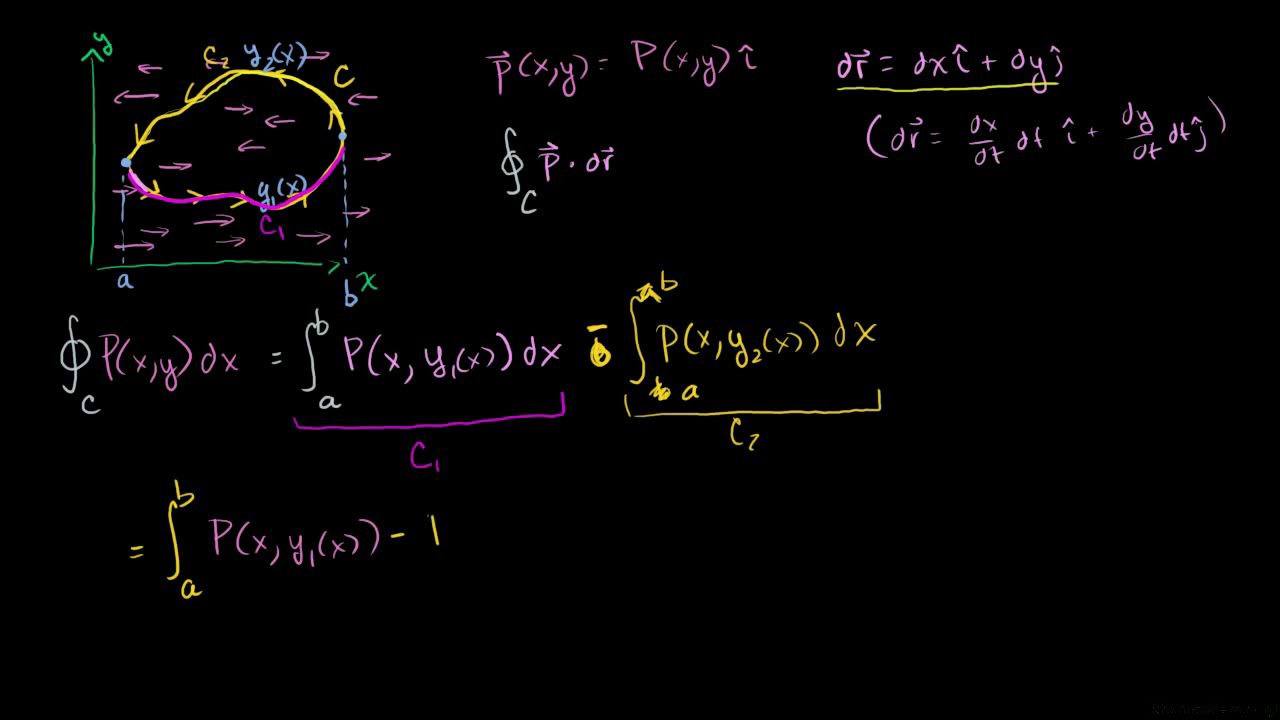 y
C₂ y₂(x)
C
y₁(x)
C₁
a
b x
p⃗(x,y) = P(x,y) î
dr⃗ = dx î + dy ĵ
(dr⃗ = dx/dt dt î + dy/dt dt ĵ)
∮_C p⃗ · dr⃗
∮_C P(x,y) dx = ∫_a^b P(x, y₁(x)) dx - ∫_a^b P(x, y₂(x)) dx
C₁
C₂
= ∫_a^b P(x, y₁(x)) -